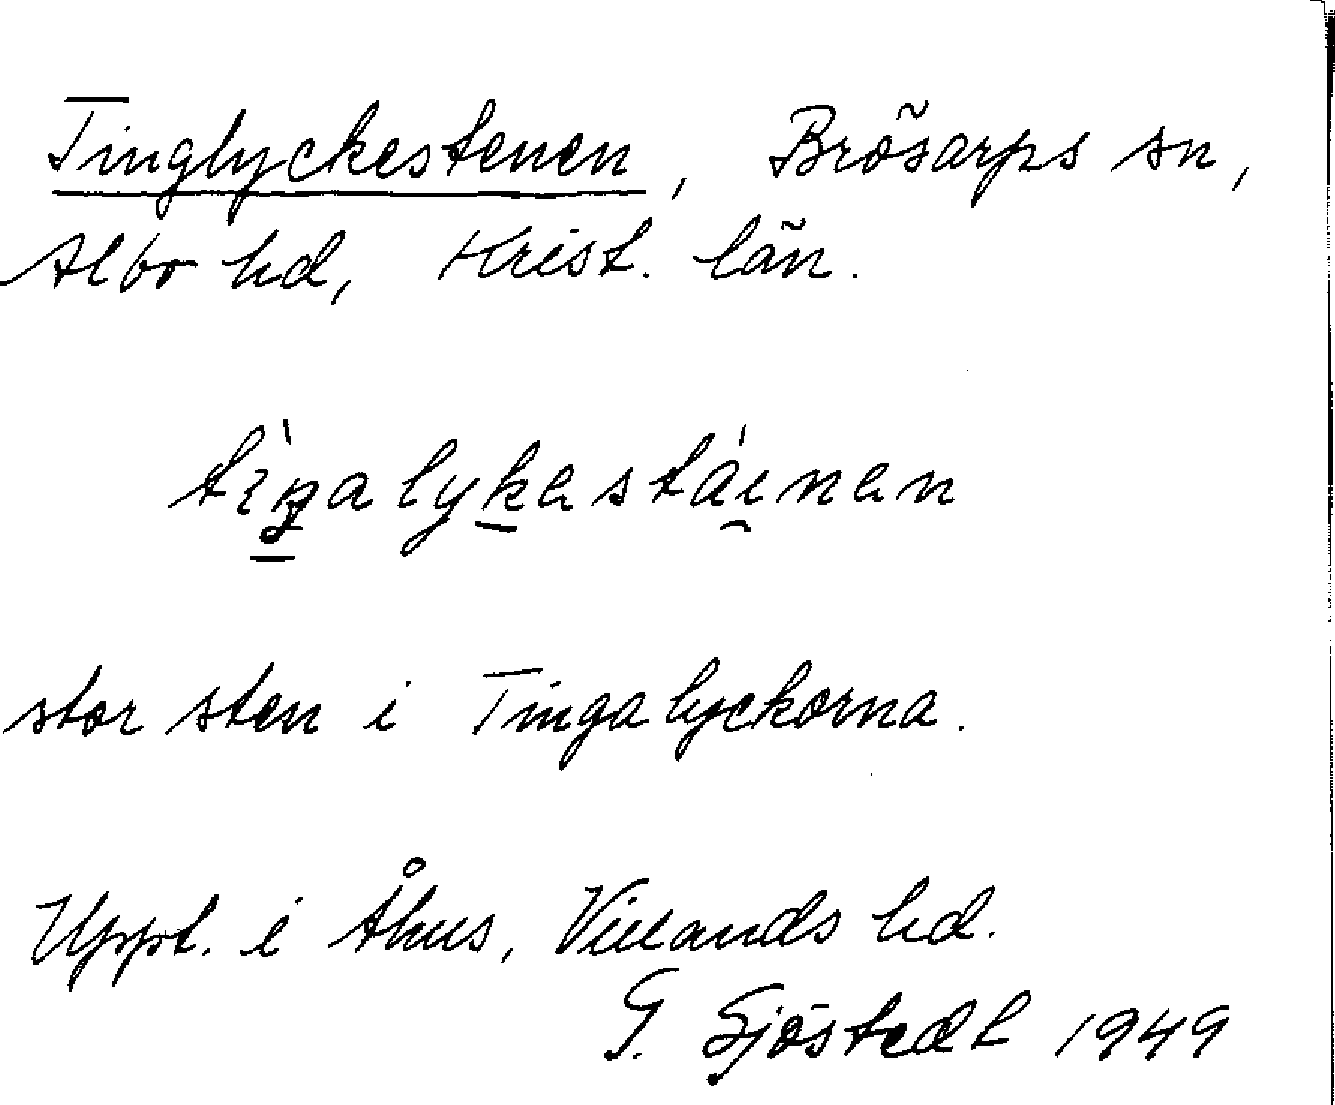 Tinglyckestenen, Brösarps sn,
Albo hd, Krist. län.
tìŋalykastáinan
stor sten i Tingalyckorna.
Uppt. i Åhus, Villands hd.
G. Sjöstedt 1949